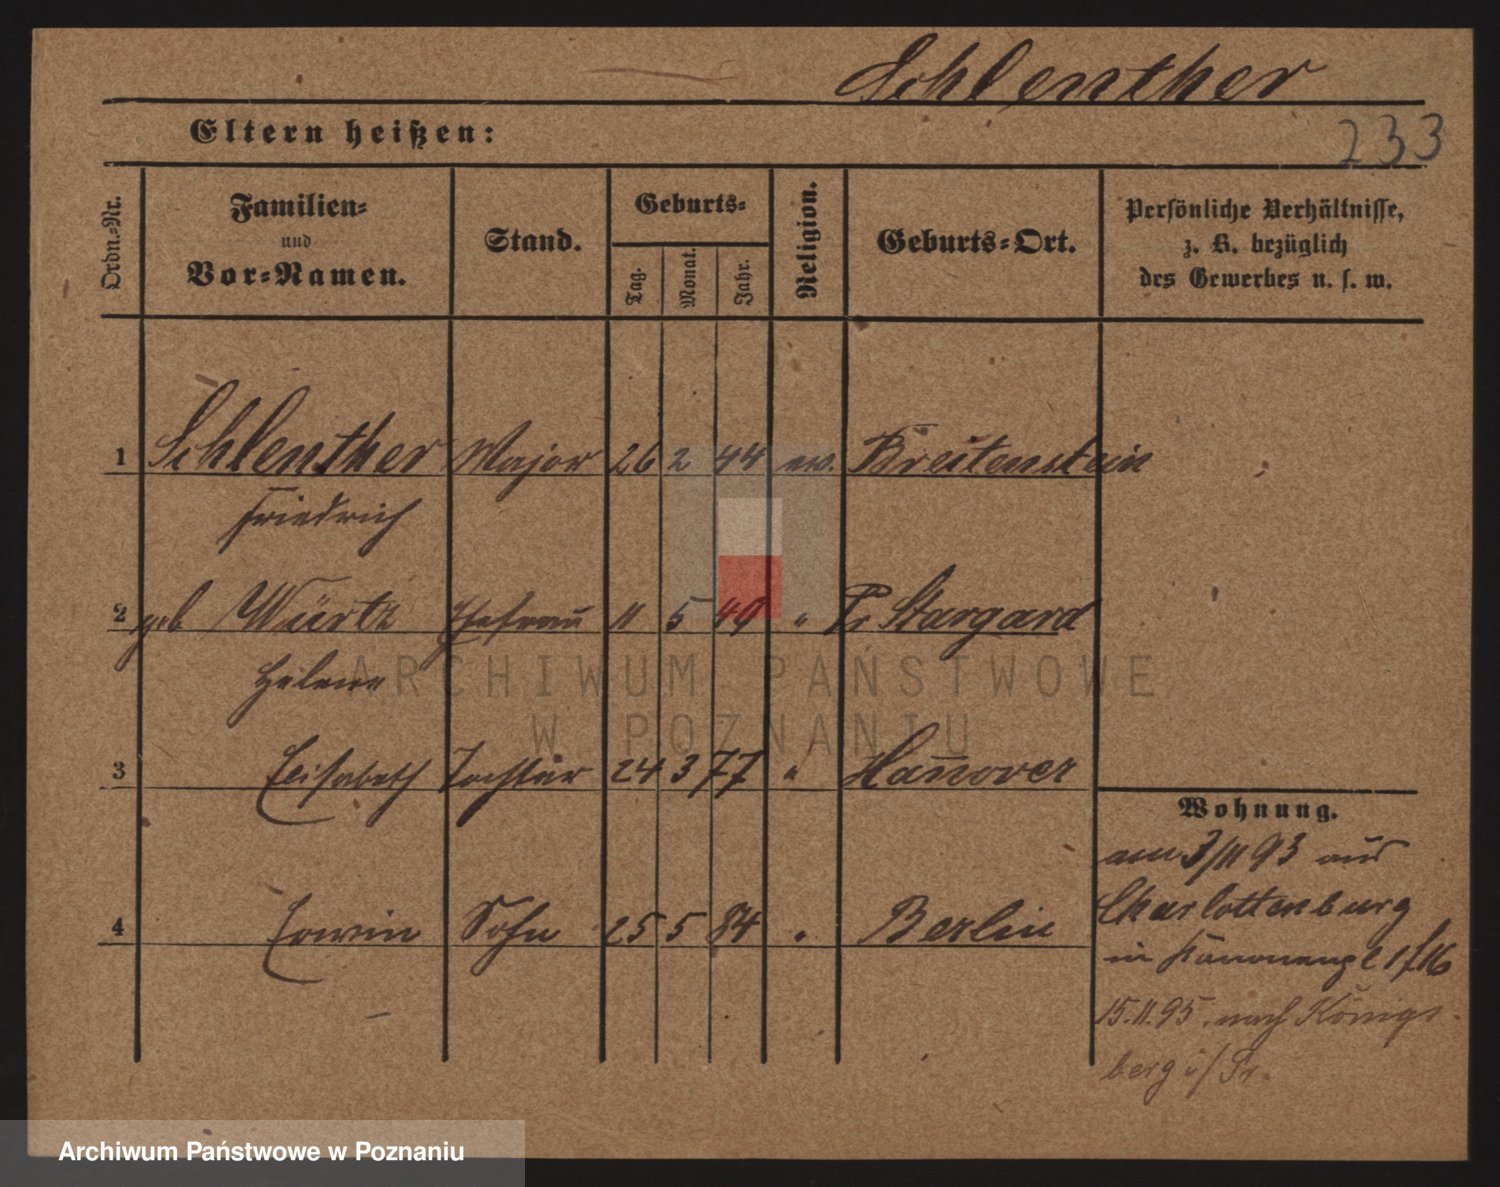 Schlenther
Eltern heißen:
233
Ordn.-Nr.
Familien-
und
Vor-Namen.
Stand.
Geburts-
Tag.
Monat.
Jahr.
Religion.
Geburts-Ort.
Persönliche Verhältnisse,
z. B. bezüglich
des Gewerbes u. s. w.
1 Schlenther Major 26 2 44 ev. Breitenstein
Friedrich
2 geb Würtz Ehefrau 11 5 49 " Pr Stargard
Helene
3 Elisabeth Tochter 24 3 77 " Hannover
4 Erwin Sohn 25 5 84 " Berlin
Wohnung.
am 3/11 93 aus
Charlottenburg
in Kanonenpl 1
15.11.95. nach Königs-
berg i/ Pr.
ARCHIWUM PAŃSTWOWE
W POZNANIU
Archiwum Państwowe w Poznaniu